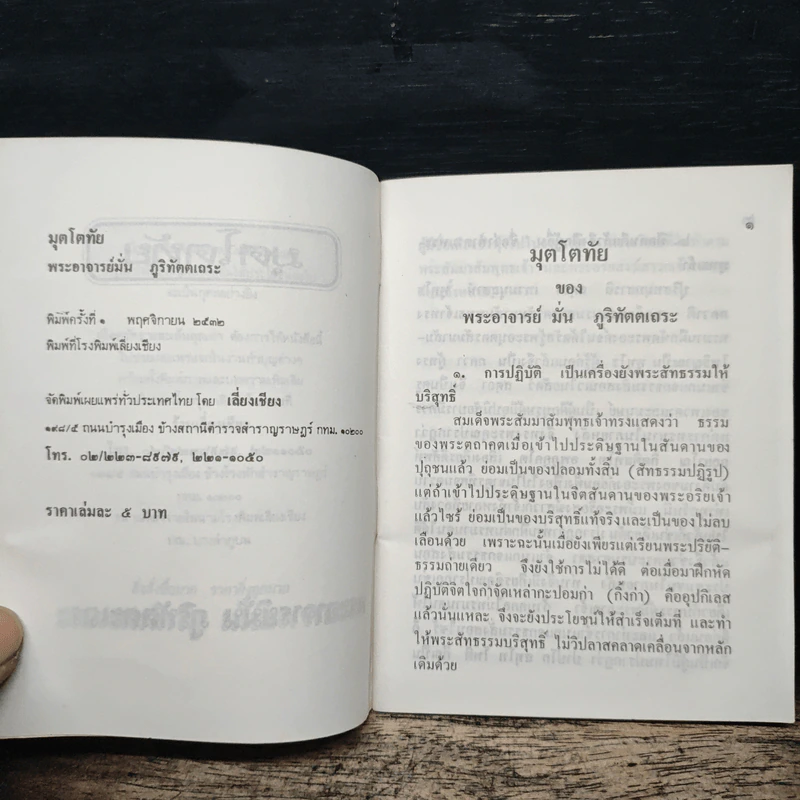 มุตโตทัย
พระอาจารย์มั่น ภูริทัตตเถระ
พิมพ์ครั้งที่ ๑ พฤศจิกายน ๒๕๓๒
พิมพ์ที่โรงพิมพ์เลี่ยงเชียง
จัดพิมพ์เผยแพร่ทั่วประเทศไทย โดย เลี่ยงเชียง
๑๙๘/๕ ถนนบำรุงเมือง ข้างสถานีตำรวจสำราญราษฎร์ กทม. ๑๐๒๐๐
โทร. ๐๒/๒๒๓-๘๙๗๙, ๒๒๑-๑๐๕๐
ราคาเล่มละ ๕ บาท
๑
มุตโตทัย
ของ
พระอาจารย์ มั่น ภูริทัตตเถระ
๑. การปฏิบัติ เป็นเครื่องยังพระสัทธรรมให้
บริสุทธิ์
สมเด็จพระสัมมาสัมพุทธเจ้าทรงแสดงว่า ธรรม
ของพระตถาคตเมื่อเข้าไปประดิษฐานในสันดานของ
ปุถุชนแล้ว ย่อมเป็นของปลอมทั้งสิ้น (สัทธรรมปฏิรูป)
แต่ถ้าเข้าไปประดิษฐานในจิตสันดานของพระอริยเจ้า
แล้วไซร้ ย่อมเป็นของบริสุทธิ์แท้จริงและเป็นของไม่ลบ
เลือนด้วย เพราะฉะนั้นเมื่อยังเพียรแต่เรียนพระปริยัติ-
ธรรมถ่ายเดียว จึงยังใช้การไม่ได้ดี ต่อเมื่อมาฝึกหัด
ปฏิบัติจิตใจกำจัดเหล่ากะปอมก่า (กิ้งก่า) คืออุปกิเลส
แล้วนั่นแหละ จึงจะยังประโยชน์ให้สำเร็จเต็มที่ และทำ
ให้พระสัทธรรมบริสุทธิ์ ไม่วิปลาสคลาดเคลื่อนจากหลัก
เดิมด้วย